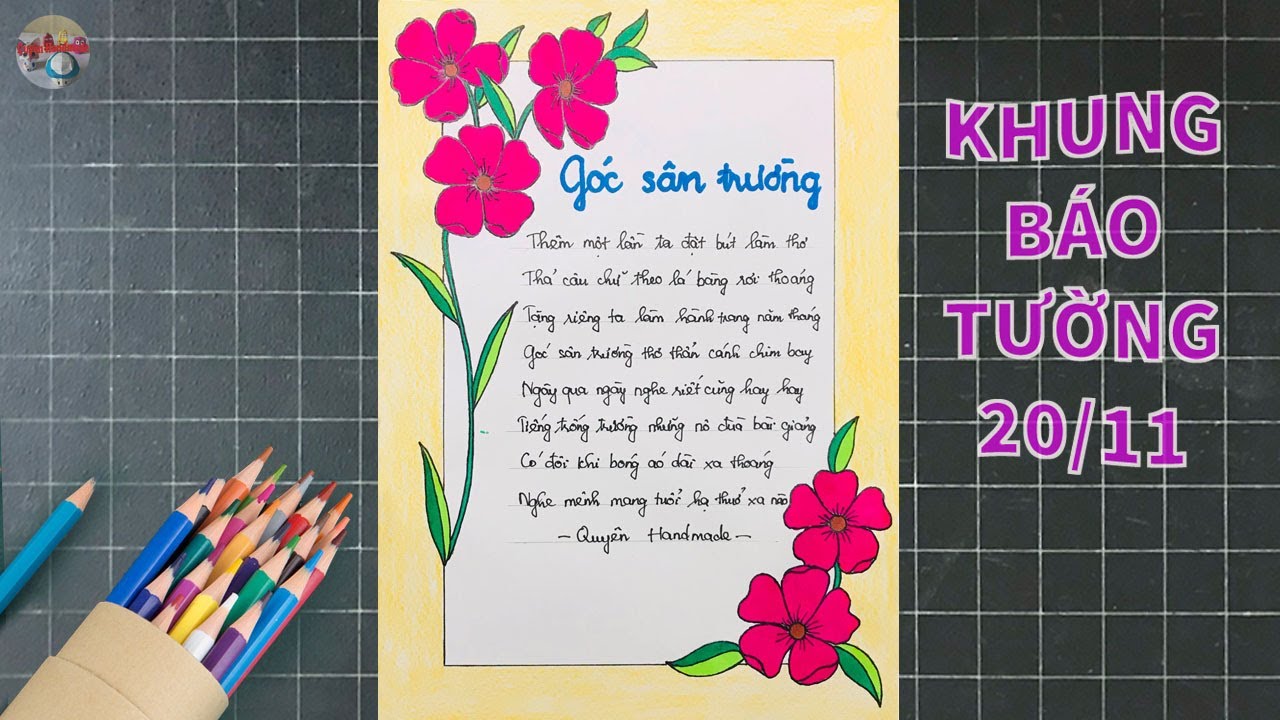 Góc sân trường
Thêm một lần ta đặt bút làm thơ
Thả câu chữ theo lá bàng rơi thoáng
Tặng riêng ta làm hành trang năm tháng
Góc sân trường thơ thẩn cánh chim bay
Ngày qua ngày nghe riết cũng hay hay
Tiếng trống trường những nô đùa bài giảng
Có đôi khi bóng áo dài xa thoáng
Nghe mênh mang tuổi hạ thuở xa nào
- Quyên Handmade -
KHUNG
BÁO
TƯỜNG
20/11